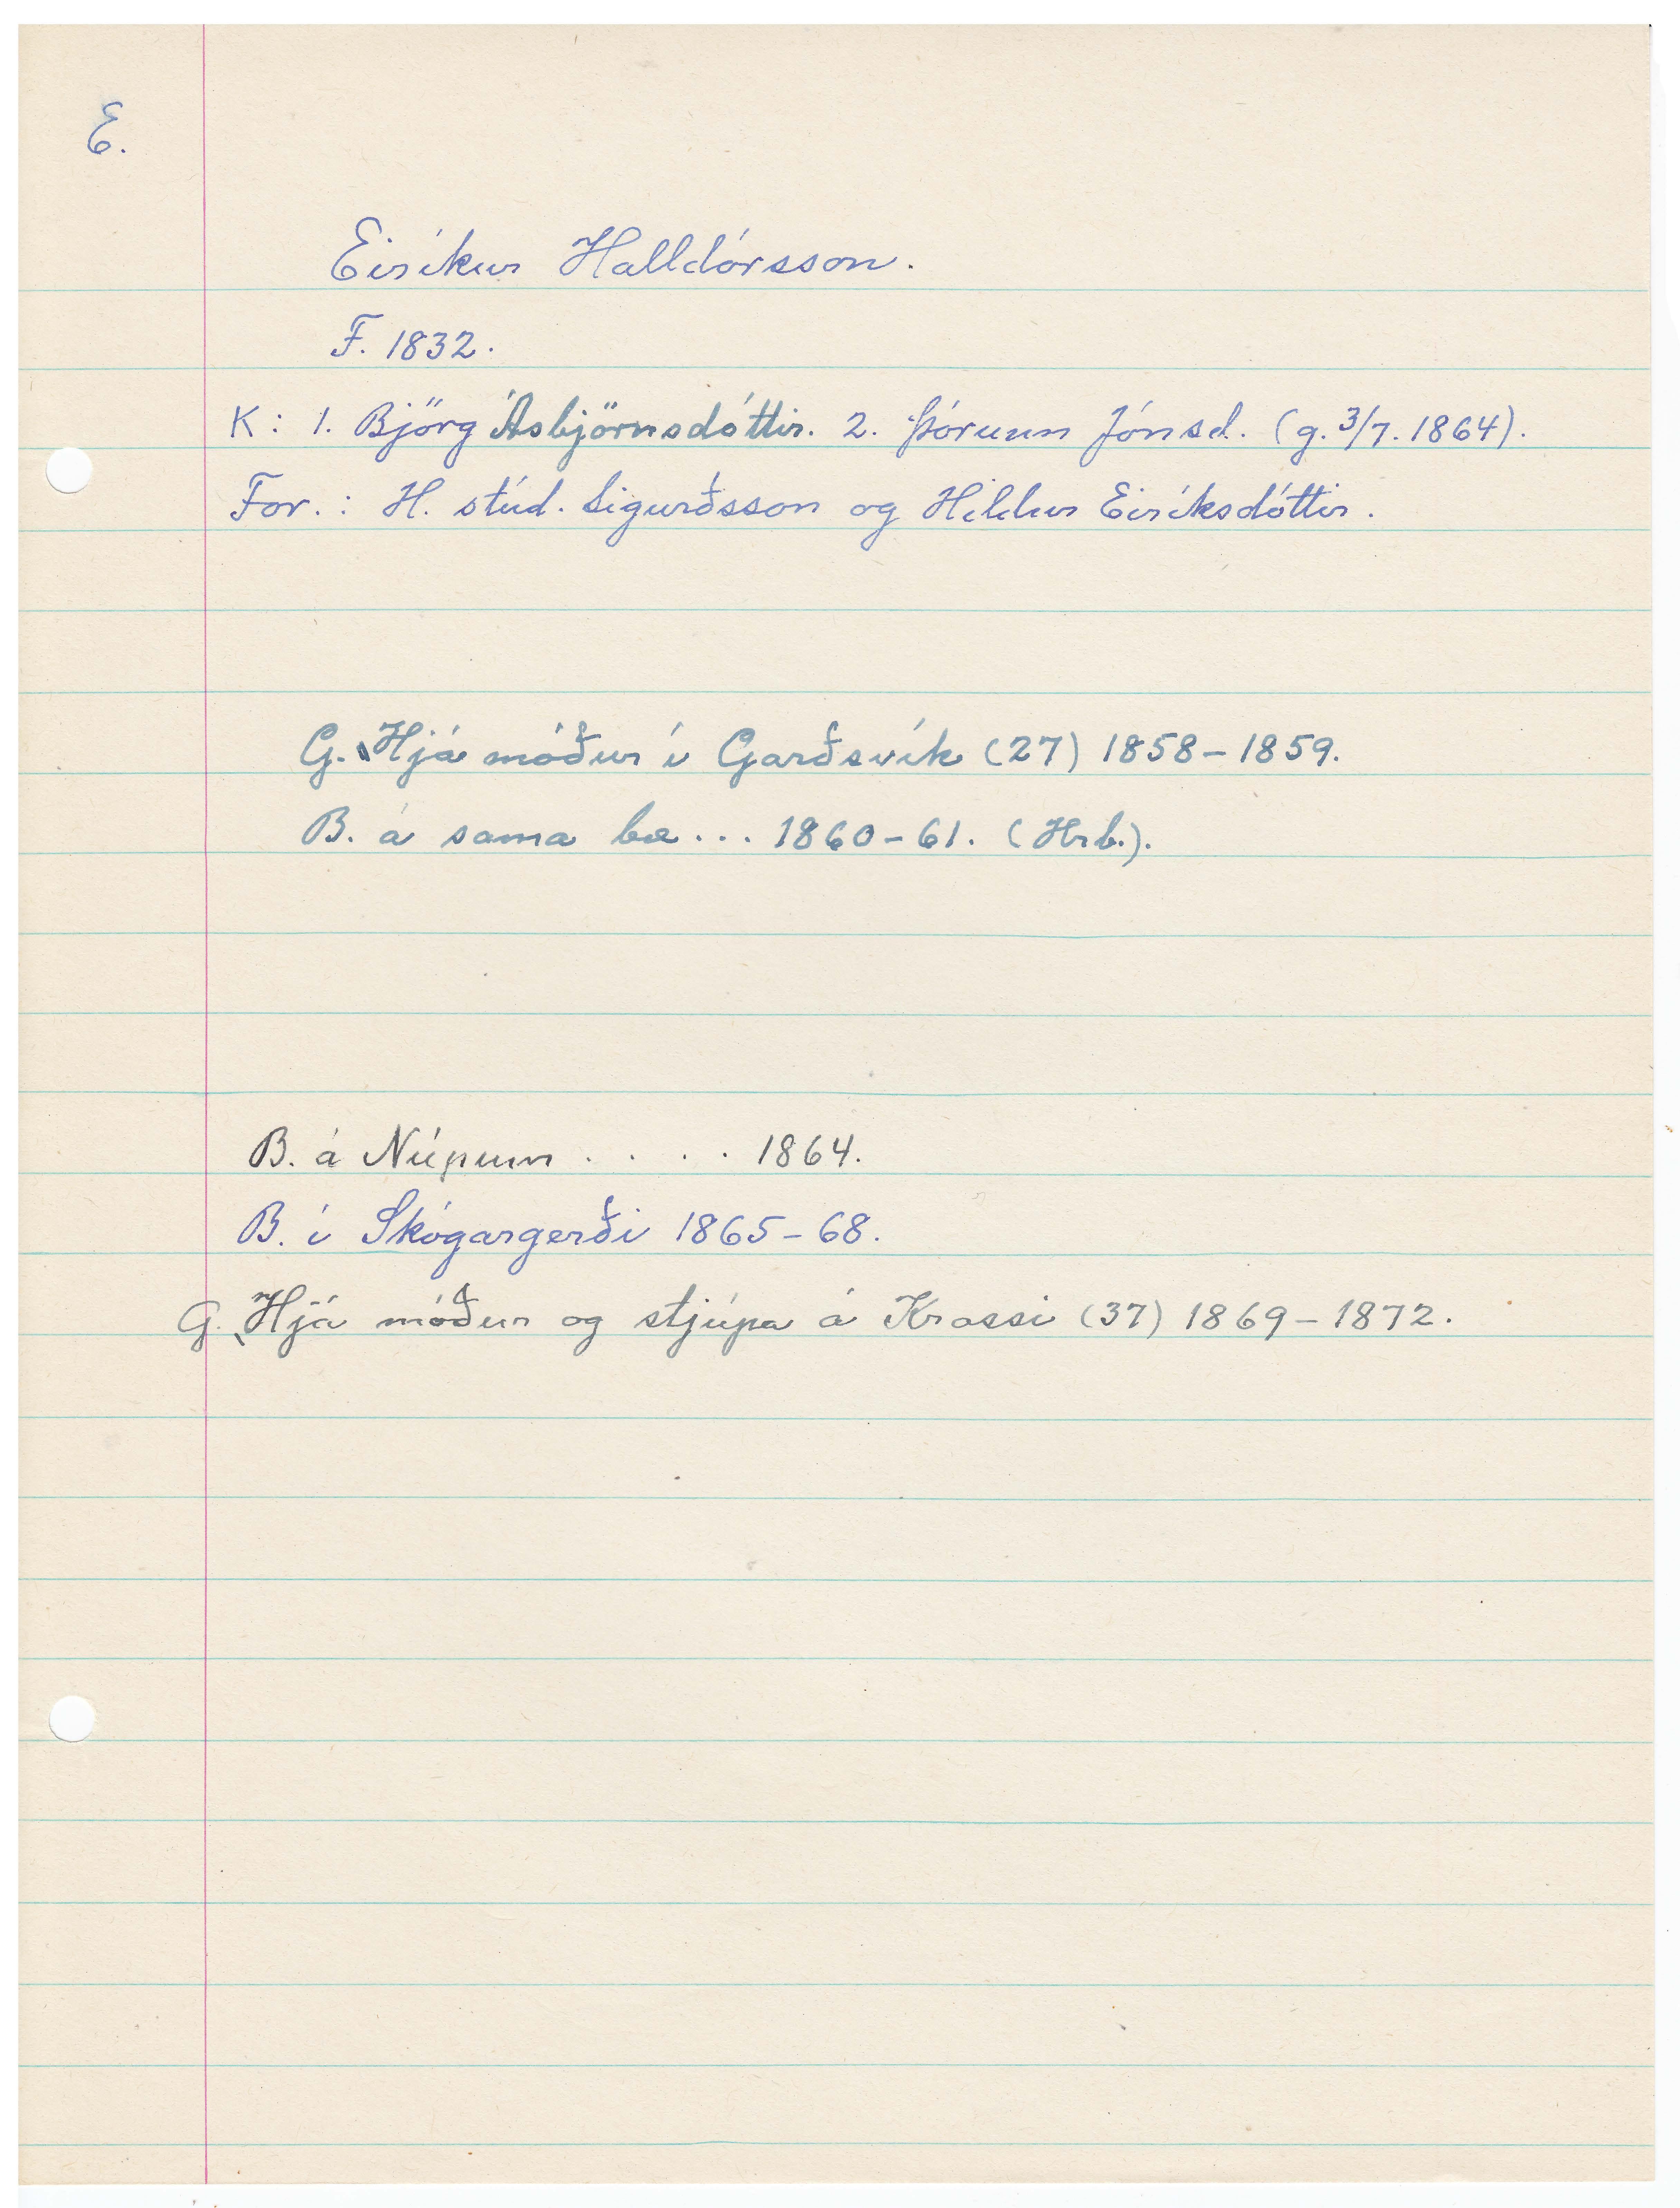 E.
Eiríkur Halldórsson.
F. 1832.
K: 1. Björg Ásbjörnsdóttir. 2. Þórunn Jónsd. (g. 3/7. 1864).
For.: H. stúd. Sigurðsson og Hildur Eiríksdóttir.
G. Hjá móður í Garðsvík (27) 1858-1859.
B. á sama bæ... 1860-61. (Hrb.).
B. á Núpum . . . . 1864.
B. í Skógargerði 1865-68.
G. Hjá móður og stjúpa á Krossi (37) 1869-1872.